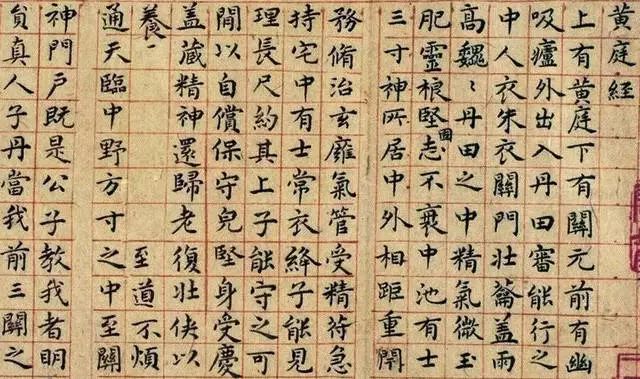 黄庭経
上有黄庭下有關元前有幽
吸廬外出入丹田審能行之
中人衣朱衣關門壮籥盖兩
高魏〻丹田之中精氣微玉
肥靈根堅固志不衰中池有士
三寸神所居中外相距重閇
務脩治玄雍氣管受精苻急
持宅中有士常衣絳子能見
理長尺約其上子能守之可
閒以自償保守皃堅身受慶
盖蔵精神還歸老復壮侠以
養 至道不煩
通天臨中野方寸之中至關
神門戸既是公子教我者明
負真人子丹當我前三關之